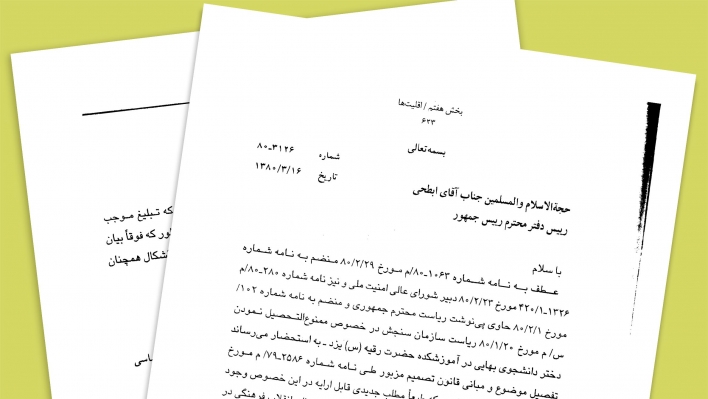 بخش هفتم / اقلیت‌ها
۶۲۳
بسمه‌تعالی
شماره ۸۰-۳۱۲۶
تاریخ ۱۳۸۰/۳/۱۶
حجةالاسلام والمسلمین جناب آقای ابطحی
رییس دفتر محترم رییس جمهور
با سلام
عطف به نامه شماره ۱۰۶۳-۸۰/م مورخ ۸۰/۲/۲۹ منضم به نامه شماره
۱۳۲۶-۴۲۰/۱ مورخ ۸۰/۲/۲۳ دبیر شورای عالی امنیت ملی و نیز نامه شماره ۲۸۰-۸۰/م
مورخ ۸۰/۲/۱ حاوی پی‌نوشت ریاست محترم جمهوری و منضم به نامه شماره ۱۰۲/
س/ م مورخ ۸۰/۱/۲۰ ریاست سازمان سنجش در خصوص ممنوع‌التحصیل نمودن
دختر دانشجوی بهایی در آموزشکده حضرت رقیه (س) یزد ـ به استحضار می‌رساند
تفصیل موضوع و مبانی قانون تصمیم مزبور طی نامه شماره ۲۵۸۶-۷۹/ م مورخ
مطلب جدیدی قابل ارایه در این خصوص وجود
فرهنگی در
که تبلیغ موجب
که فوقاً بیان
همچنان